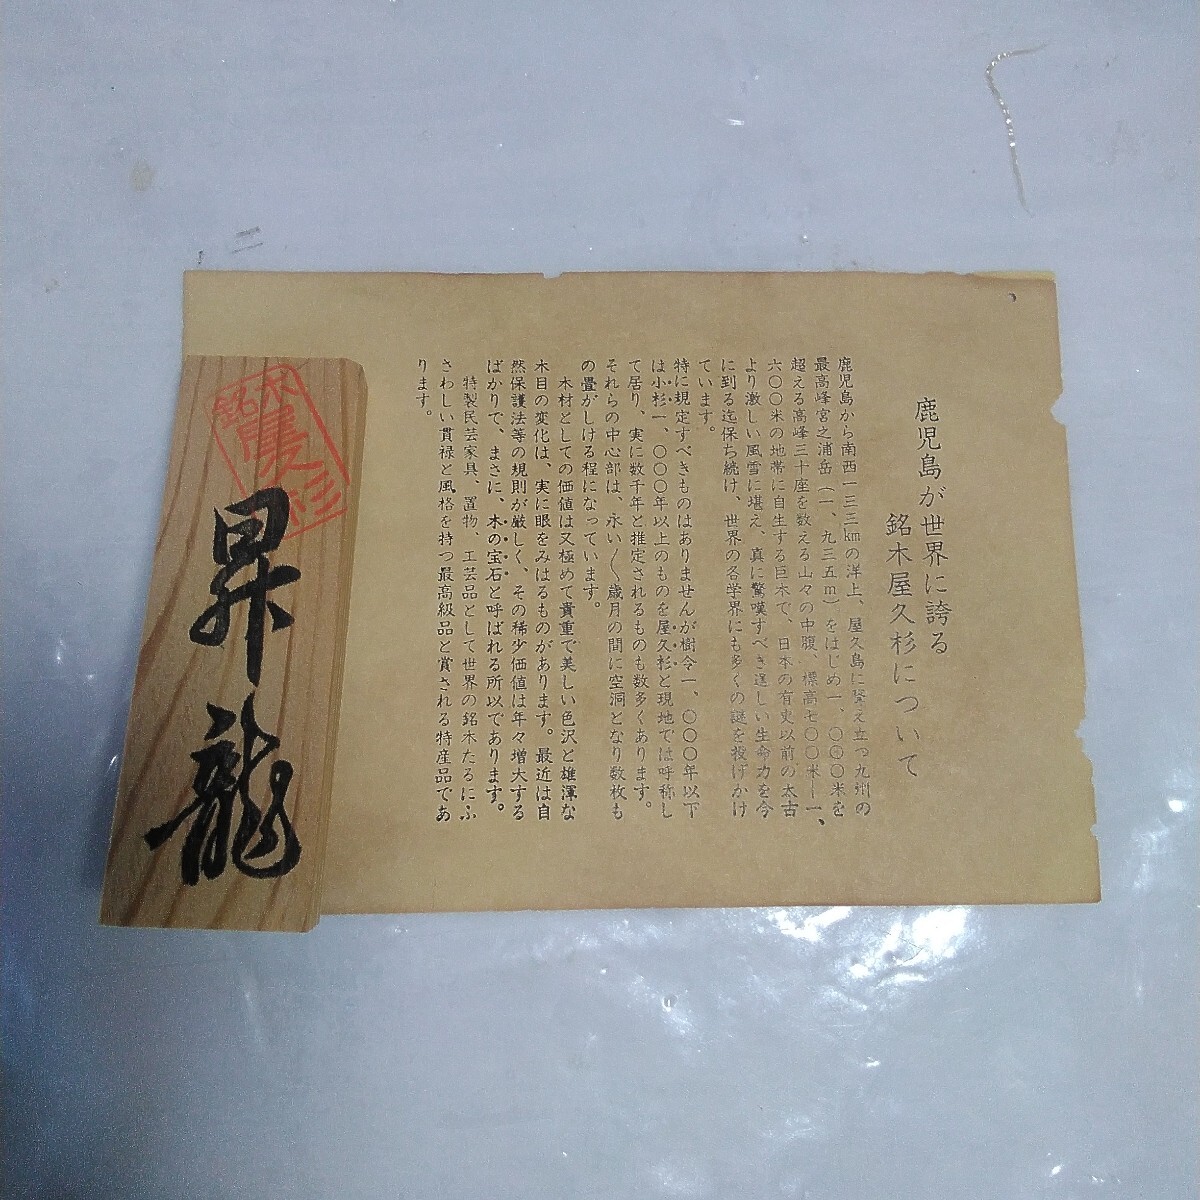 鹿児島が世界に誇る
銘木屋久杉について
鹿児島から南西一三三kmの洋上、屋久島に聳え立つ九州の
最高峰宮之浦岳（一、九三五m）をはじめ一、〇〇〇米を
超える高峰三十座を数える山々の中腹、標高七〇〇米ー一、
六〇〇米の地帯に自生する巨木で、日本の有史以前の太古
より激しい風雪に堪え、真に驚嘆すべき逞しい生命力を今
に到る迄保ち続け、世界の各学界にも多くの謎を投げかけ
ています。
特に規定すべきものはありませんが樹令一、〇〇〇年以下
は小杉一、〇〇〇年以上のものを屋久杉と現地では呼称し
て居り、実に数千年と推定されるものも数多くあります。
それらの中心部は、永い〱歳月の間に空洞となり数枚も
の畳がしける程になっています。
木材としての価値は又極めて貴重で美しい色沢と雄渾な
木目の変化は、実に眼をみはるものがあります。最近は自
然保護法等の規則が厳しく、その稀少価値は年々増大する
ばかりで、まさに、木の宝石と呼ばれる所以であります。
特製民芸家具、置物、工芸品として世界の銘木たるにふ
さわしい貫禄と風格を持つ最高級品と賞される特産品であ
ります。
銘木
屋久杉
昇龍